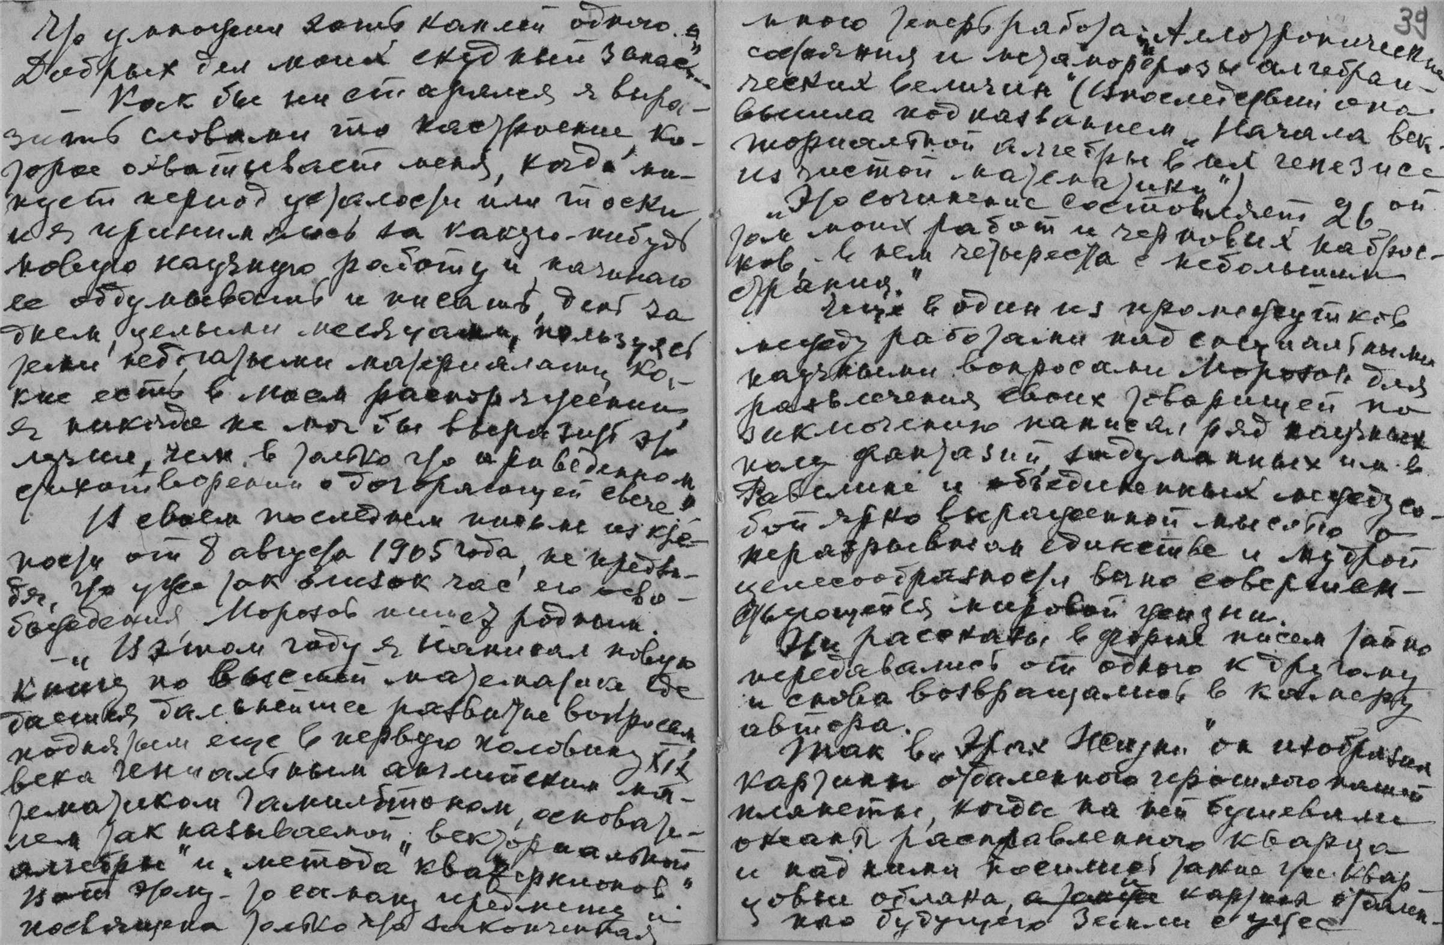 Что умножил хоть каплей одною я
Добрых дел моих скудный запас."
— Как бы ни старался я выра-
зить словами то настроение, ко-
торое охватывает меня, когда ми-
нует период усталости или тоски
и я принимаюсь за какую-нибудь
новую научную работу и начинаю
ее обдумывать и писать, день за
днем, целыми месяцами, пользуясь
теми небогатыми материалами, ка-
кие есть в моем распоряжении,
я никогда не мог бы выразить это
лучше, чем в только что приведенном
стихотворении о догорающей свече."
В своем последнем письме из кре-
пости от 8 августа 1905 года, не предви-
дя, что уже так близок час его осво-
бождения Морозов пишет родным:
— „В этом году я написал новую
книгу по высшей математике где
дается дальнейшее развитие вопросам
поднятым еще в первую половину XIX
века гениальным английским ма-
тематиком Гамильтоном, основате-
лем так называемой „векториальной
алгебры" и „метода кватернионов"
Вот этому-то самому предмету и
посвящена только что законченная
39
мною теперь работа: „Аллотропические
состояния и метаморфозы алгебраи-
ческих величин" (Впоследствии она
вышла под названием „Начала век-
ториальной алгебры в их генезисе
из чистой математики")
„Это сочинение составляет 26ой
том моих работ и черновых наброс-
ков, в нем четыреста с небольшим
страниц."
Еще в один из промежутков
между работами над специальными
научными вопросами Морозов для
развлечения своих товарищей по
заключению написал ряд научных
полу фантазий, задуманных им в
Равелине и объединенных между со-
бой ярко выраженной мыслью о
неразрывном единстве и мудрой
целесообразности вечно совершен-
ствующейся мировой жизни.
Эти рассказы в форме писем тайно
передавались от одного к другому
и снова возвращались в камеру
автора.
Так в „Эрах Жизни" он изобразил
картины отдаленного прошлого нашей
планеты, когда на ней бушевали
океаны расплавленного кварца
и над ними носились такие же квар-
цовые облака, а затем картина отдален-
ного будущего Земли с уже